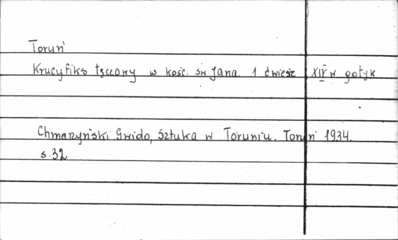 Toruń
Krucyfiks tęczowy w kość. św Jana. 1 ćwierć XIV w gotyk
Chmarzyński Gwido, Sztuka w Toruniu. Toruń 1934.
s. 32